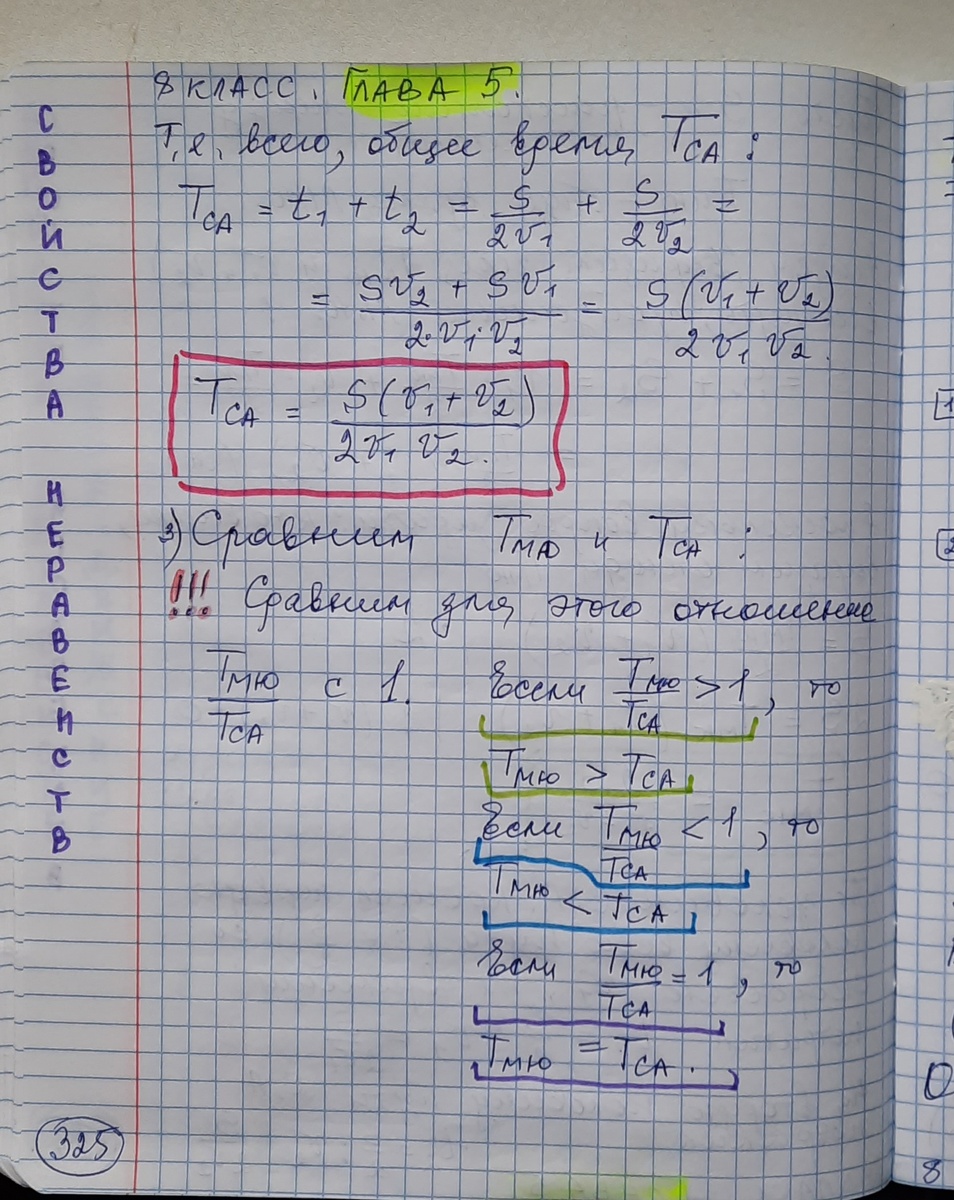 СВОЙСТВА НЕРАВЕНСТВ
8 КЛАСС. ГЛАВА 5.
Т.е. всего, общее время T_СА :
T_СА = t₁ + t₂ = S/2v₁ + S/2v₂ =
= (Sv₂ + Sv₁)/(2·v₁·v₂) = S(v₁ + v₂)/(2v₁v₂).
T_СА = S(v₁ + v₂)/(2v₁v₂).
3) Сравним T_МЮ и T_СА :
!!! Сравним для этого отношение
T_МЮ/T_СА с 1. Если T_МЮ/T_СА > 1, то
T_МЮ > T_СА
Если T_МЮ/T_СА < 1, то
T_МЮ < T_СА
Если T_МЮ/T_СА = 1, то
T_МЮ = T_СА.
325
8